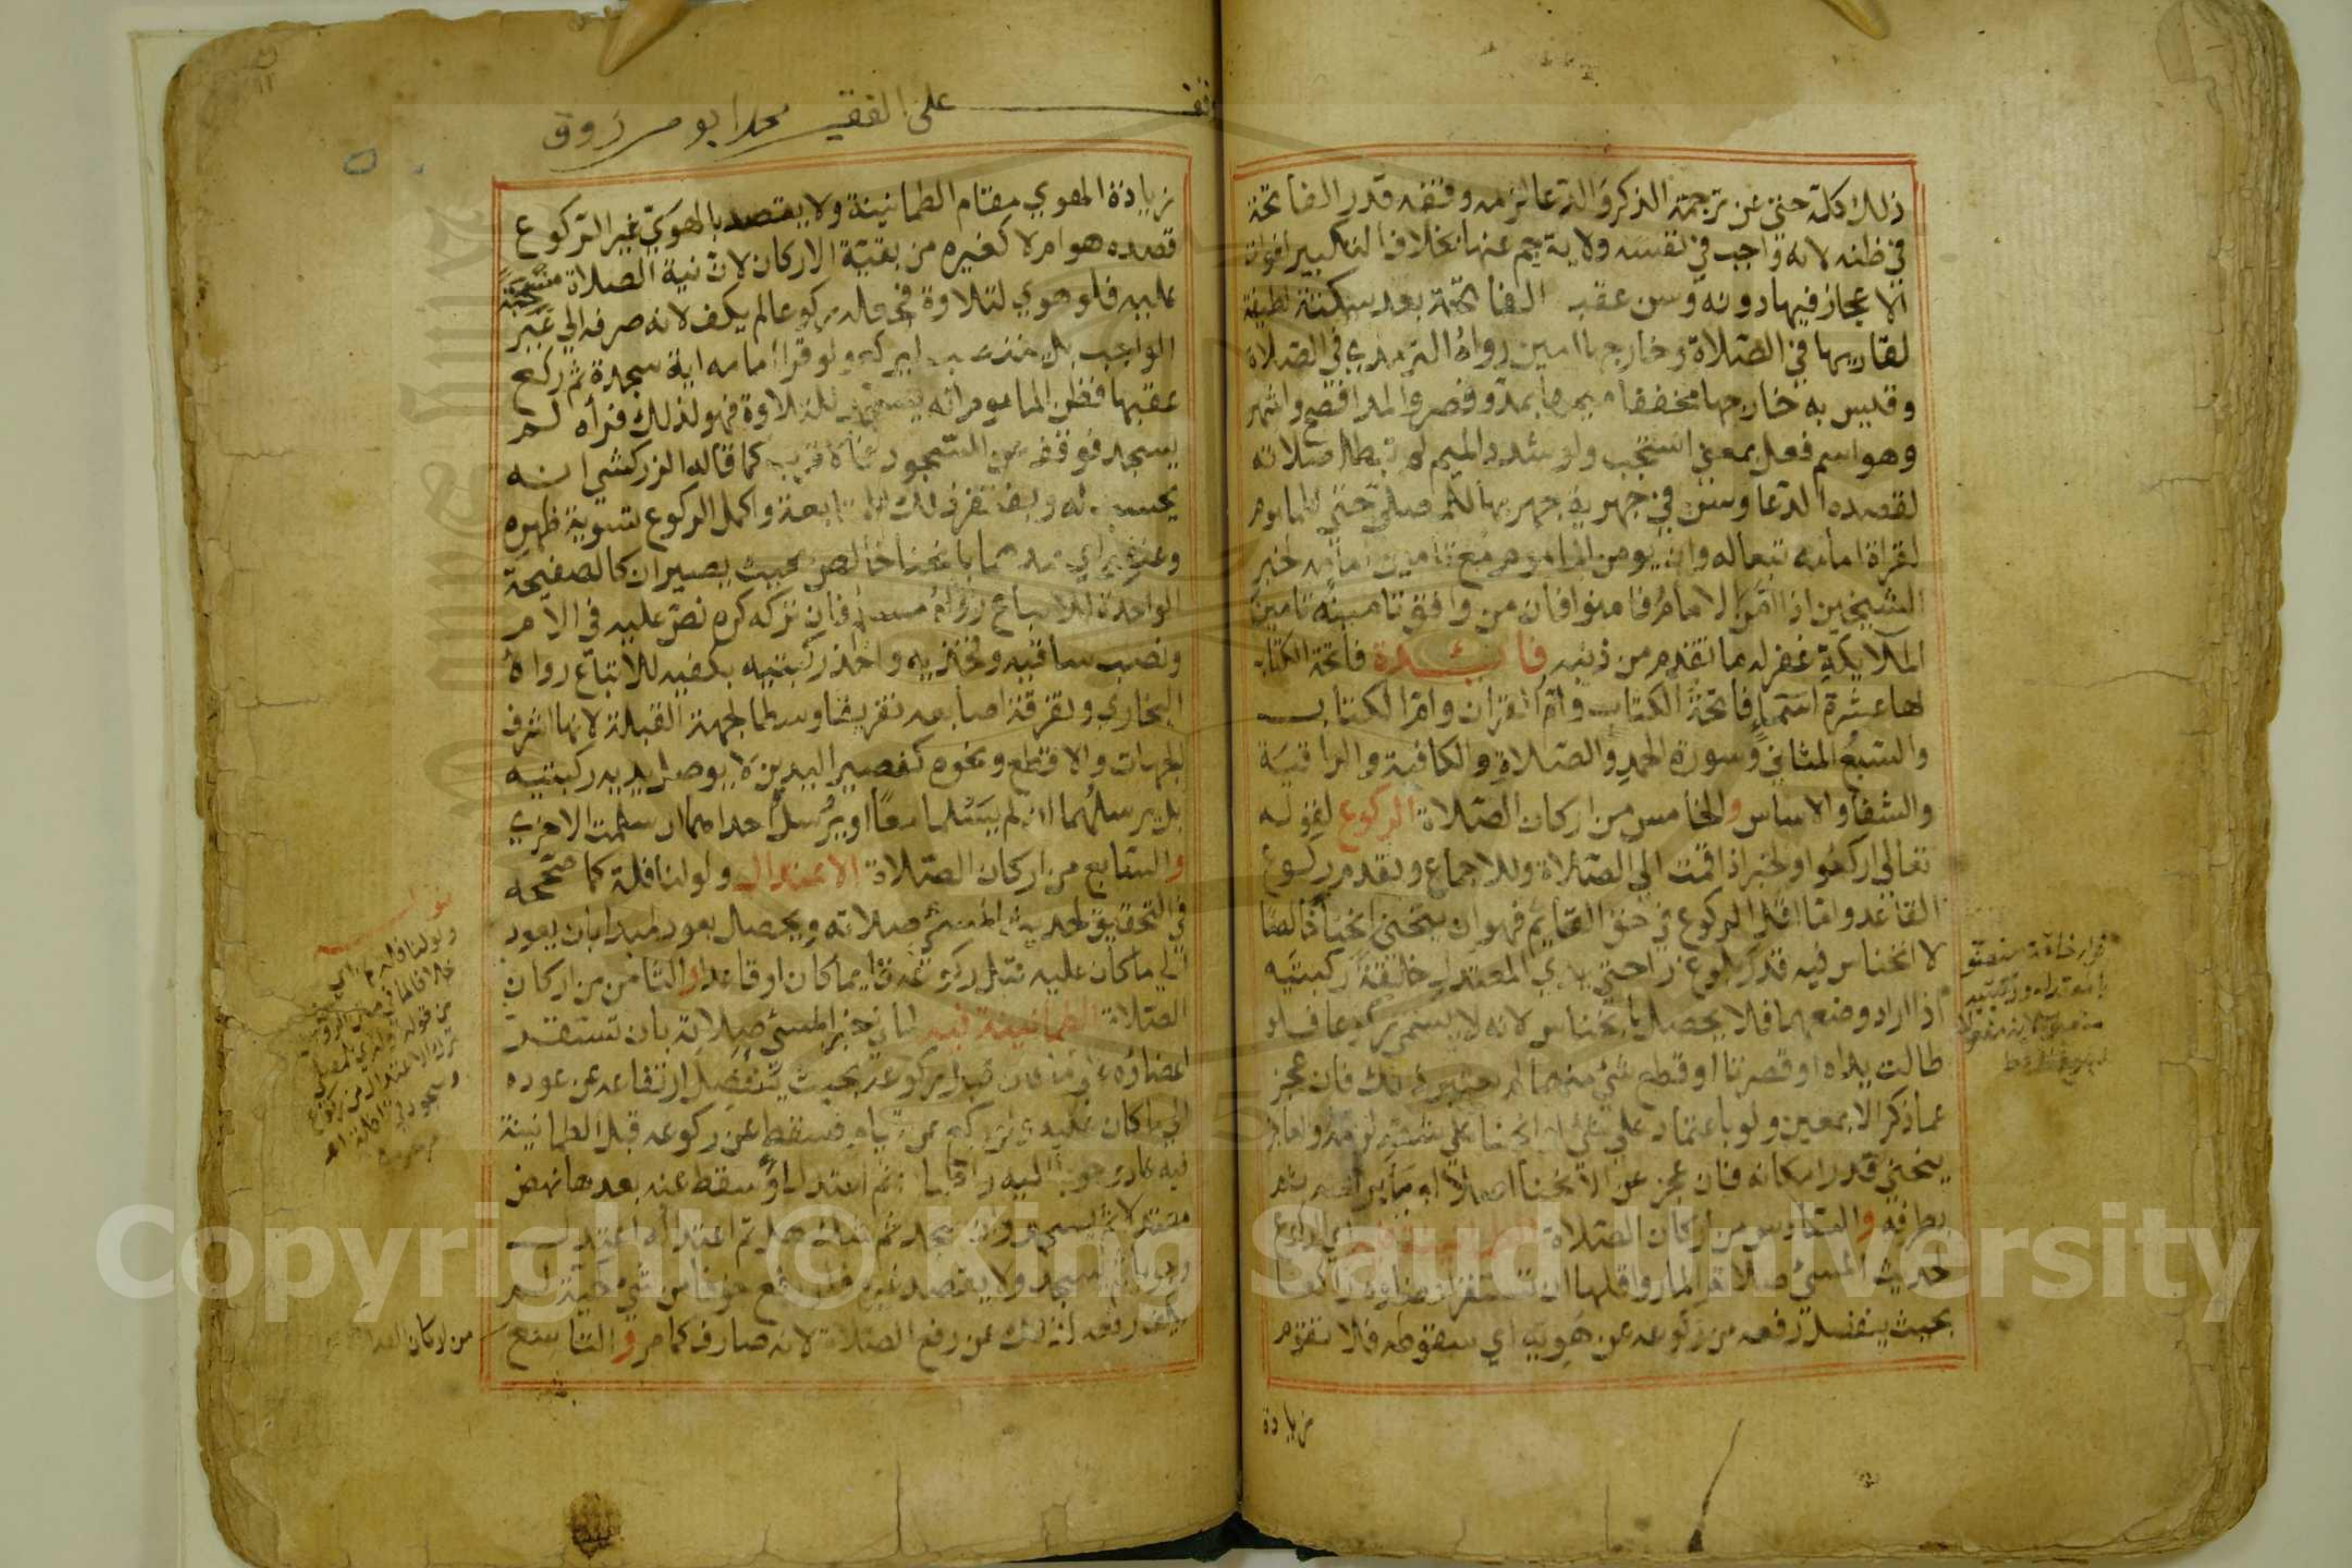 ذلك كله حتى عن ترجمة الذكر والدعا لزمه وقفة قدر الفاتحة
في ظنه لانه واجب في نفسه ولا يترجم عنها بخلاف التكبير لفوات
الاعجاز فيها دونه وسن عقب الفاتحة بعد سكتة لطيفة
لقاريها في الصلاة وخارجها امين رواه الترمذي في الصلاة
وقيس به خارجها مخففا ميمها بمد وقصر والمد افصح واشهر
وهو اسم فعل بمعنى استجب ولو شدد الميم لم تبطل صلاته
لقصده الدعا وسن في جهرية جهر بها للمصلي حتى للماموم
لقراة امامه تبعا له وان يومن الماموم مع تامين امامه لخبر
الشيخين اذا امن الامام فامنوا فان من وافق تامينه تامين
الملايكة غفر له ما تقدم من ذنبه فايدة فاتحة الكتاب
لها عشرة اسما فاتحة الكتاب وام القران وام الكتاب
والسبع المثاني وسورة الحمد والصلاة والكافية والواقية
والشفا والاساس والخامس من اركان الصلاة الركوع لقوله
تعالى اركعوا ولخبر اذا قمت الى الصلاة وللاجماع وتقدم ركوع
القاعد واما اقل الركوع في حق القايم فهو ان ينحني انحناء خالصا
لا انخناس فيه قدر بلوغ راحتي يدي المعتدل خلقة ركبتيه
اذا اراد وضعهما فلا يحصل بانخناس لانه لا يسمى ركوعا فلو
طالت يداه او قصرتا او قطع شي منهما لم يعتبر ذلك فان عجز
عما ذكر الا بمعين ولو باعتماد على شي او انحنا على شقه لزمه والعاجز
ينحني قدر امكانه فان عجز عن الانحنا اصلا اوما براسه ثم
بطرفه والسادس من اركان الصلاة
حديث المسي صلاته المار واقلها ان تستقر اعضاوه راكعا
بحيث ينفصل رفعه من ركوعه عن هويه اي سقوطه فلا تقوم
زيادة
وقف على الفقير محمد ابو مرزوق
زيادة الهوي مقام الطمانينة ولا يقصد بالهوي غير الركوع
قصده هو ام لا كغيره من بقية الاركان لان نية الصلاة منسحبة
عليه فلو هوي لتلاوة فجعله ركوعا لم يكف لانه صرفه الى غير
الواجب بل ينتصب ليركع ولو قرا امامه اية سجدة ثم ركع
عقبها فظن الماموم انه يسجد للتلاوة فهوي لذلك فراه لم
يسجد فوقف عن السجود فالاقرب كما قاله الزركشي انه
يحسب له ويغتفر ذلك للمتابعة واكمل الركوع تسوية ظهره
وعنقه اي يمدهما بانحنا خالص بحيث يصيران كالصفيحة
الواحدة للاتباع رواه مسلم فان تركه كره نص عليه في الام
ونصب ساقيه وفخذيه واخذ ركبتيه بكفيه للاتباع رواه
البخاري وتفرقة اصابعه تفريقا وسطا لجهة القبلة لانها اشرف
الجهات والاقطع ونحوه كقصير اليدين لا يوصل يديه ركبتيه
بل يرسلهما ان لم يسلما معا او يرسل احداهما ان سلمت الاخرى
والسابع من اركان الصلاة الاعتدال ولو لنافلة كما صححه
في التحقيق لحديث المسي صلاته ويحصل بعود لبدا بان يعود
الى ما كان عليه قبل ركوعه قايما كان او قاعدا والثامن من اركان
الصلاة الطمانينة فيه لما في خبر المسي صلاته بان تستقر
اعضاوه على ما كان قبل ركوعه بحيث ينفصل ارتفاعه عن عوده
الى ما كان عليه ولو ركع عن قيام فسقط عن ركوعه قبل الطمانينة
فيه عاد وجوبا اليه واطمان ثم اعتدل او سقط عنه بعدها نهض
معتدلا ثم يسجد وان سجد ثم شك هل تم اعتداله اعتدل
وجوبا ثم سجد ولا يقصد غيره فلو رفع خوفا من شي كحية لم
يكف رفعه لذلك عن رفع الصلاة لانه صارف كما مر والتاسع
من اركان الصلاة
Copyright © King Saud University